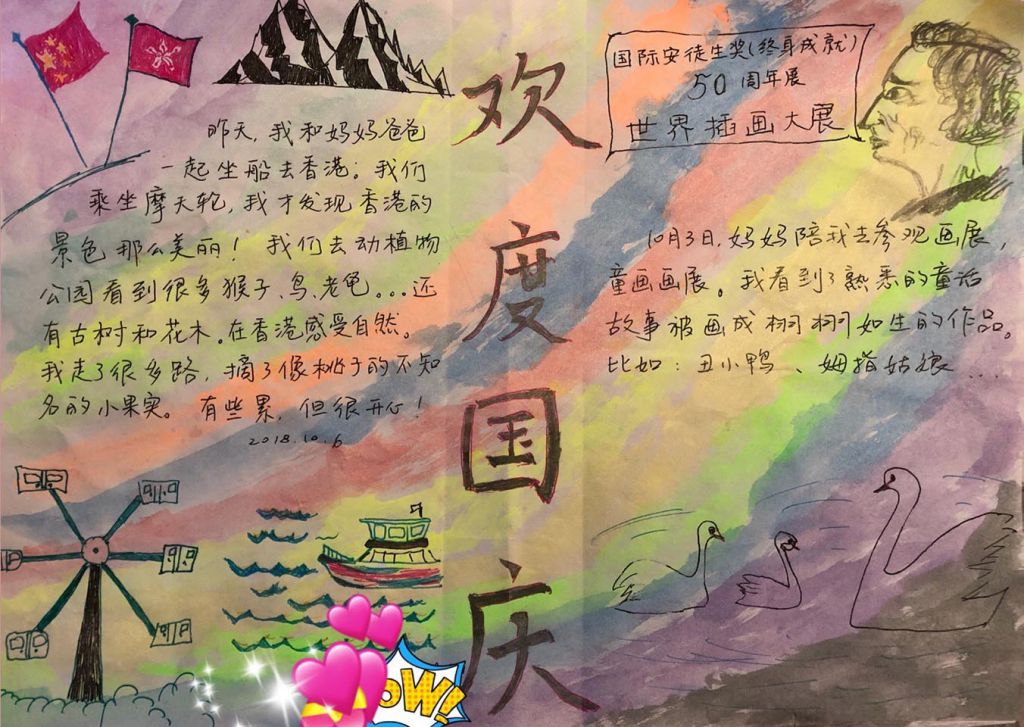 欢度国庆
昨天，我和妈妈爸爸
一起坐船去香港；我们
乘坐摩天轮，我才发现香港的
景色那么美丽！我们去动植物
公园看到很多猴子、鸟、老龟...还
有古树和花木。在香港感受自然。
我走了很多路，摘了像桃子的不知
名的小果实。有些累，但很开心！
2018.10.6
国际安徒生奖(终身成就)
50周年展
世界插画大展
10月3日，妈妈陪我去参观画展，
童画画展。我看到了熟悉的童话
故事被画成栩栩如生的作品。
比如：丑小鸭、姆指姑娘...
OW!